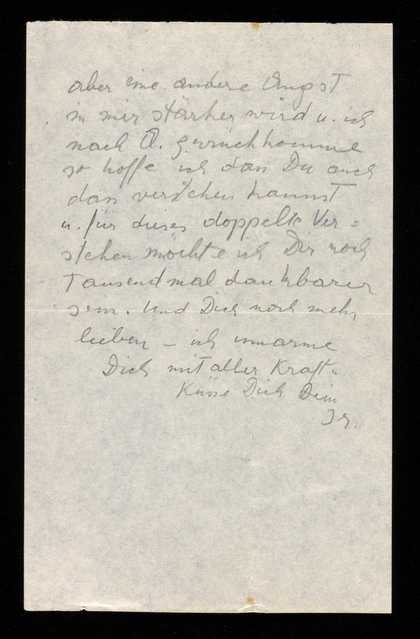 aber eine andere Angst
in mir stärker wird u. ich
nach Ö. zurückkomme
so hoffe ich dass Du auch
dass verstehen kannst
u. für dieses doppelte Ver=
stehen möchte ich Dir noch
Tausendmal dankbarer
sein. Und Dich noch mehr
lieben – ich umarme
Dich mit aller Kraft.
Küsse Dich Dein